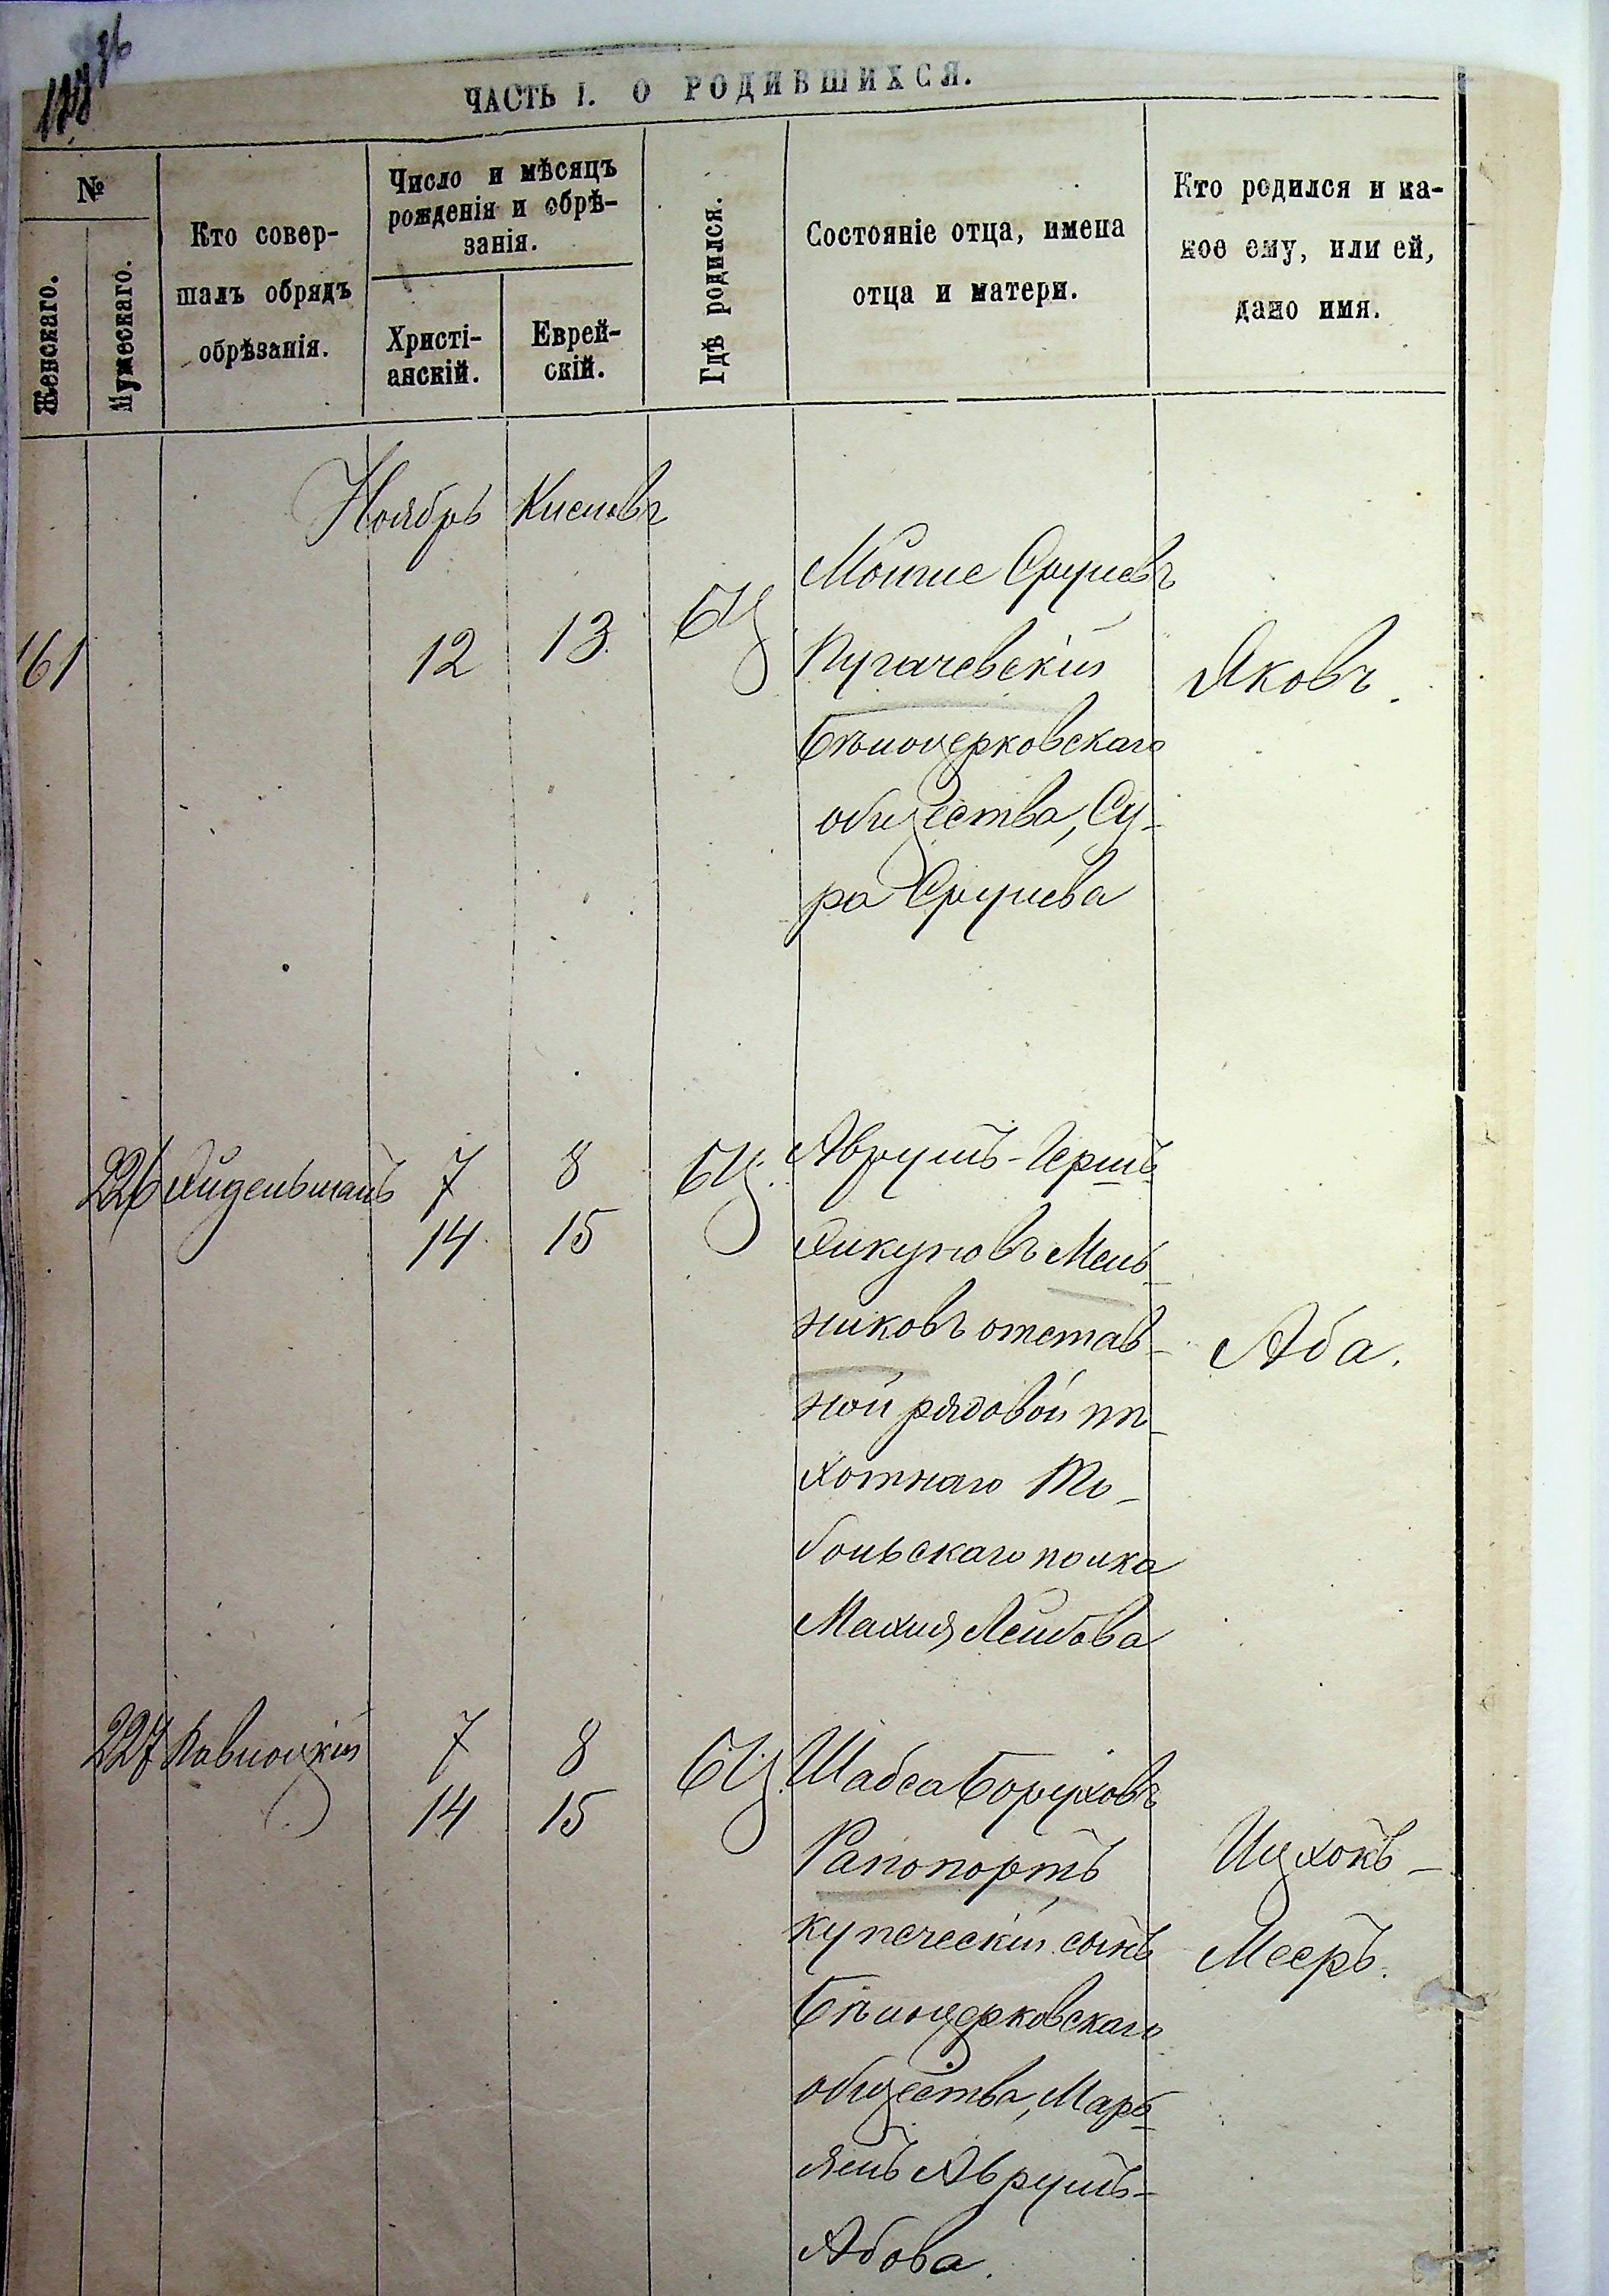 ЧАСТЬ I. О РОДИВШИХСЯ.
№
Женскаго.
Мужескаго.
Кто совер-
шалъ обрядъ
обрѣзанія.
Число и мѣсяцъ
рожденія и обрѣ-
занія.
Христі-
анскій.
Еврей-
скій.
Гдѣ родился.
Состояніе отца, имена
отца и матери.
Кто родился и ка-
кое ему, или ей,
дано имя.
Ноябрь Кислевъ
161 12 13. БЦ
Мойше Срулевъ
Пугачевскій
Бѣлоцерковскаго
общества, Су-
ра Срулева
Яковъ.
226 7 8 БЦ.
14 15
Аврумъ-Гершъ
Янкуповъ Мель-
никовъ отстав-
ной рядовой пѣ-
хотнаго То-
больскаго полка
Малия Лейбова
Аба.
227 Павлоцкій 7 8 БЦ.
14 15
Шабса Боруховъ
Рапопортъ
купеческій сынъ
Бѣлоцерковскаго
общества, Марь-
ямъ Аврумъ-
Абова.
Ицхокъ-
Мееръ.